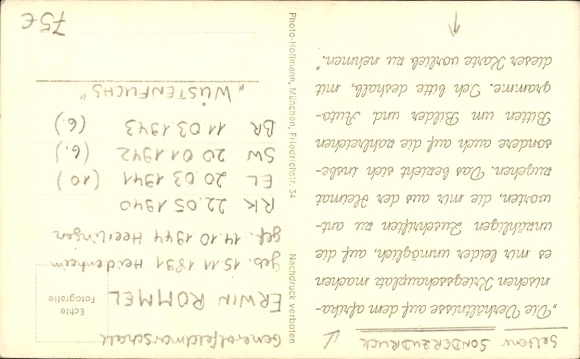 Seltener SONDERDRUCK
„Die Verhältnisse auf dem afrika-
nischen Kriegsschauplatz machen
es mir leider unmöglich, auf die
unzähligen Zuschriften zu ant-
worten, die mir aus der Heimat
zugehen. Das bezieht sich insbe-
sondere auch auf die zahlreichen
Bitten um Bilder und Auto-
gramme. Ich bitte deshalb, mit
dieser Karte vorlieb zu nehmen.“
Photo-Hoffmann, München, Friedrichstr. 34
Nachdruck verboten
Generalfeldmarschall
ERWIN ROMMEL
Echte
Fotografie
geb. 15.11.1891 Heidenheim
gef. 14.10.1944 Heerlingen
RK 22.05.1940
EL 20.03.1941 (10)
SW 20.01.1942 (6.)
BR 11.03.1943 (6.)
„WÜSTENFUCHS“
75€